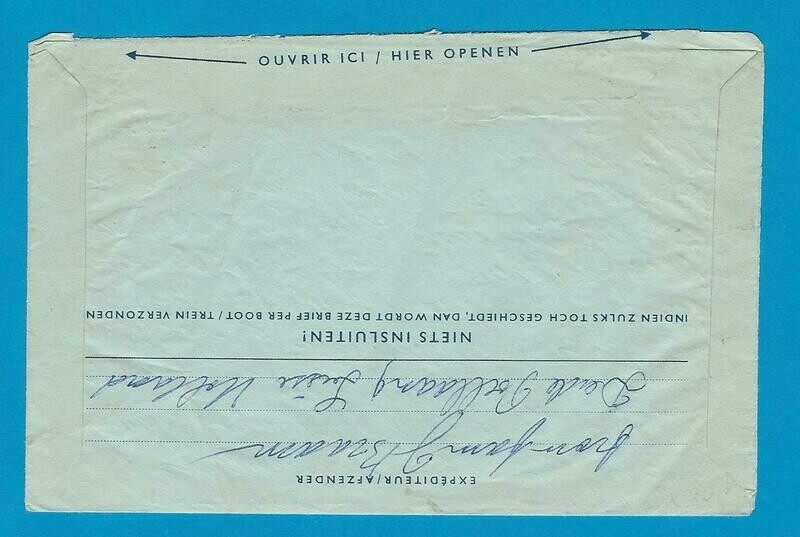 OUVRIR ICI / HIER OPENEN
EXPÉDITEUR/AFZENDER
J Braam
Lisse Holland
NIETS INSLUITEN!
INDIEN ZULKS TOCH GESCHIEDT, DAN WORDT DEZE BRIEF PER BOOT / TREIN VERZONDEN